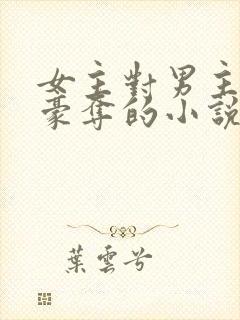 女主對男主
豪奪的小說
葉雲兮